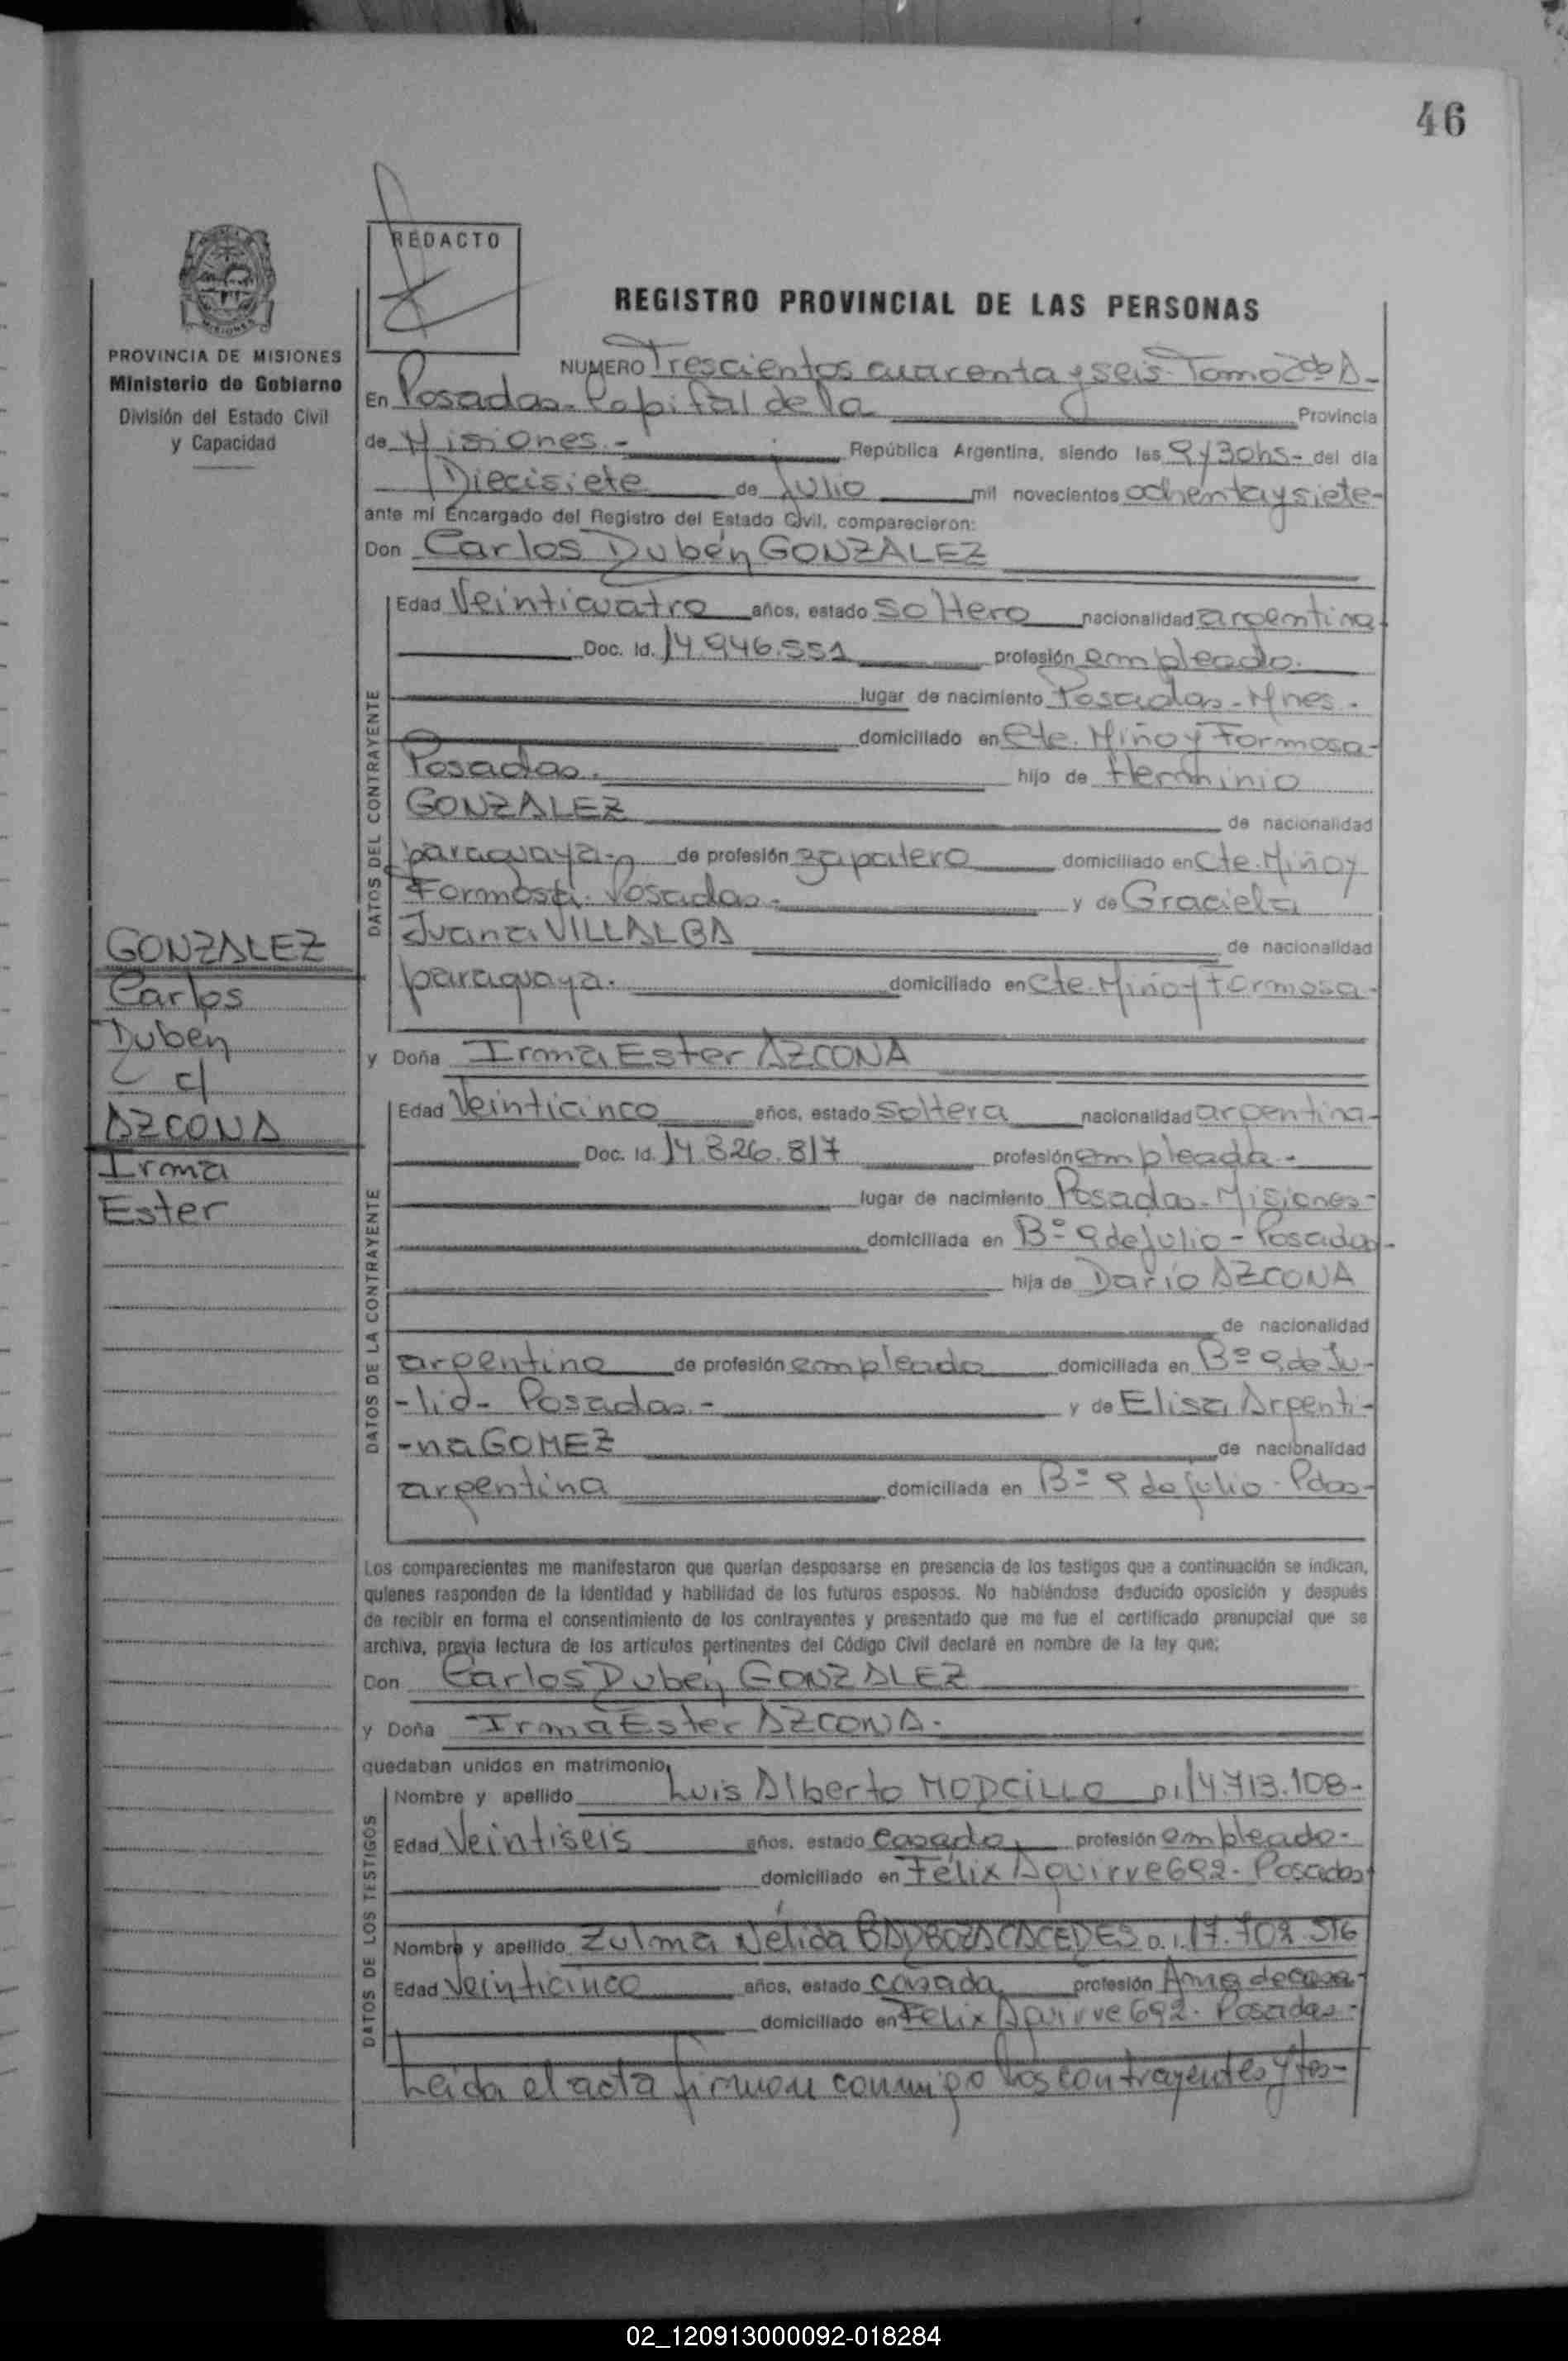 46
REDACTO
REGISTRO PROVINCIAL DE LAS PERSONAS
PROVINCIA DE MISIONES
Ministerio de Gobierno
División del Estado Civil
y Capacidad
NUMERO Trescientos cuarenta y seis Tomo 2do A-
En Posadas-Capital de la Provincia
de Misiones.- República Argentina, siendo las 9y30hs- del día
Diecisiete de Julio mil novecientos ochentaysiete-
ante mí Encargado del Registro del Estado Civil, comparecieron:
Don Carlos Rubén GONZALEZ
DATOS DEL CONTRAYENTE
Edad Veinticuatro años, estado soltero nacionalidad argentina
Doc. Id. 14.946.551 profesión empleado.
lugar de nacimiento Posadas-Mnes.
domiciliado en Cte. Miño y Formosa-
Posadas. hijo de Herminio
GONZALEZ de nacionalidad
paraguaya- de profesión zapatero domiciliado en Cte. Miño y
Formosa. Posadas- y de Graciela
Juana VILLALBA de nacionalidad
paraguaya. domiciliado en Cte. Miño y Formosa-
GONZALEZ
Carlos
Rubén
c/
AZCONA
Irma
Ester
y Doña Irma Ester AZCONA
DATOS DE LA CONTRAYENTE
Edad Veinticinco años, estado soltera nacionalidad argentina-
Doc. Id. 14.326.817 profesión empleada-
lugar de nacimiento Posadas-Misiones-
domiciliada en Bº 9 de Julio - Posadas-
hija de Darío AZCONA
de nacionalidad
argentino de profesión empleado domiciliada en Bº 9 de Ju-
-lio- Posadas.- y de Elisa Argenti-
-na GOMEZ de nacionalidad
argentina domiciliada en Bº 9 de julio - Pdas-
Los comparecientes me manifestaron que querían desposarse en presencia de los testigos que a continuación se indican,
quienes responden de la identidad y habilidad de los futuros esposos. No habiéndose deducido oposición y después
de recibir en forma el consentimiento de los contrayentes y presentado que me fue el certificado prenupcial que se
archiva, previa lectura de los artículos pertinentes del Código Civil declaré en nombre de la ley que:
Don Carlos Rubén GONZALEZ
y Doña Irma Ester AZCONA-
quedaban unidos en matrimonio,
DATOS DE LOS TESTIGOS
Nombre y apellido Luis Alberto MORCILLO D.I 14.713.108-
Edad Veintiseis años, estado Casado, profesión empleado-
domiciliado en Félix Aguirre 692- Posadas
Nombre y apellido Zulma Nélida BARBOZA CACERES D.I. 17.702.516
Edad Veinticinco años, estado casada profesión Ama de casa-
domiciliado en Felix Aguirre 692- Posadas-
Leida el acta firman conmigo los contrayentes y tes-
02_120913000092-018284